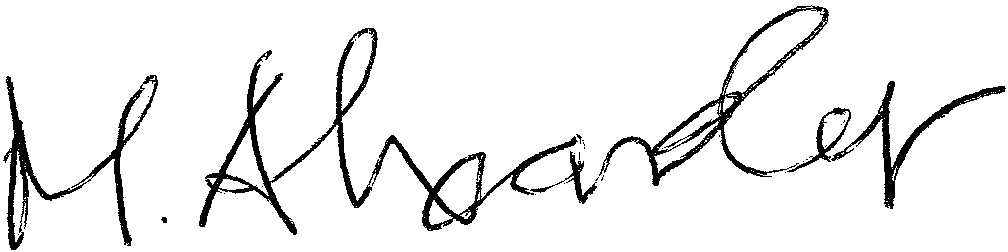 M. Alexander